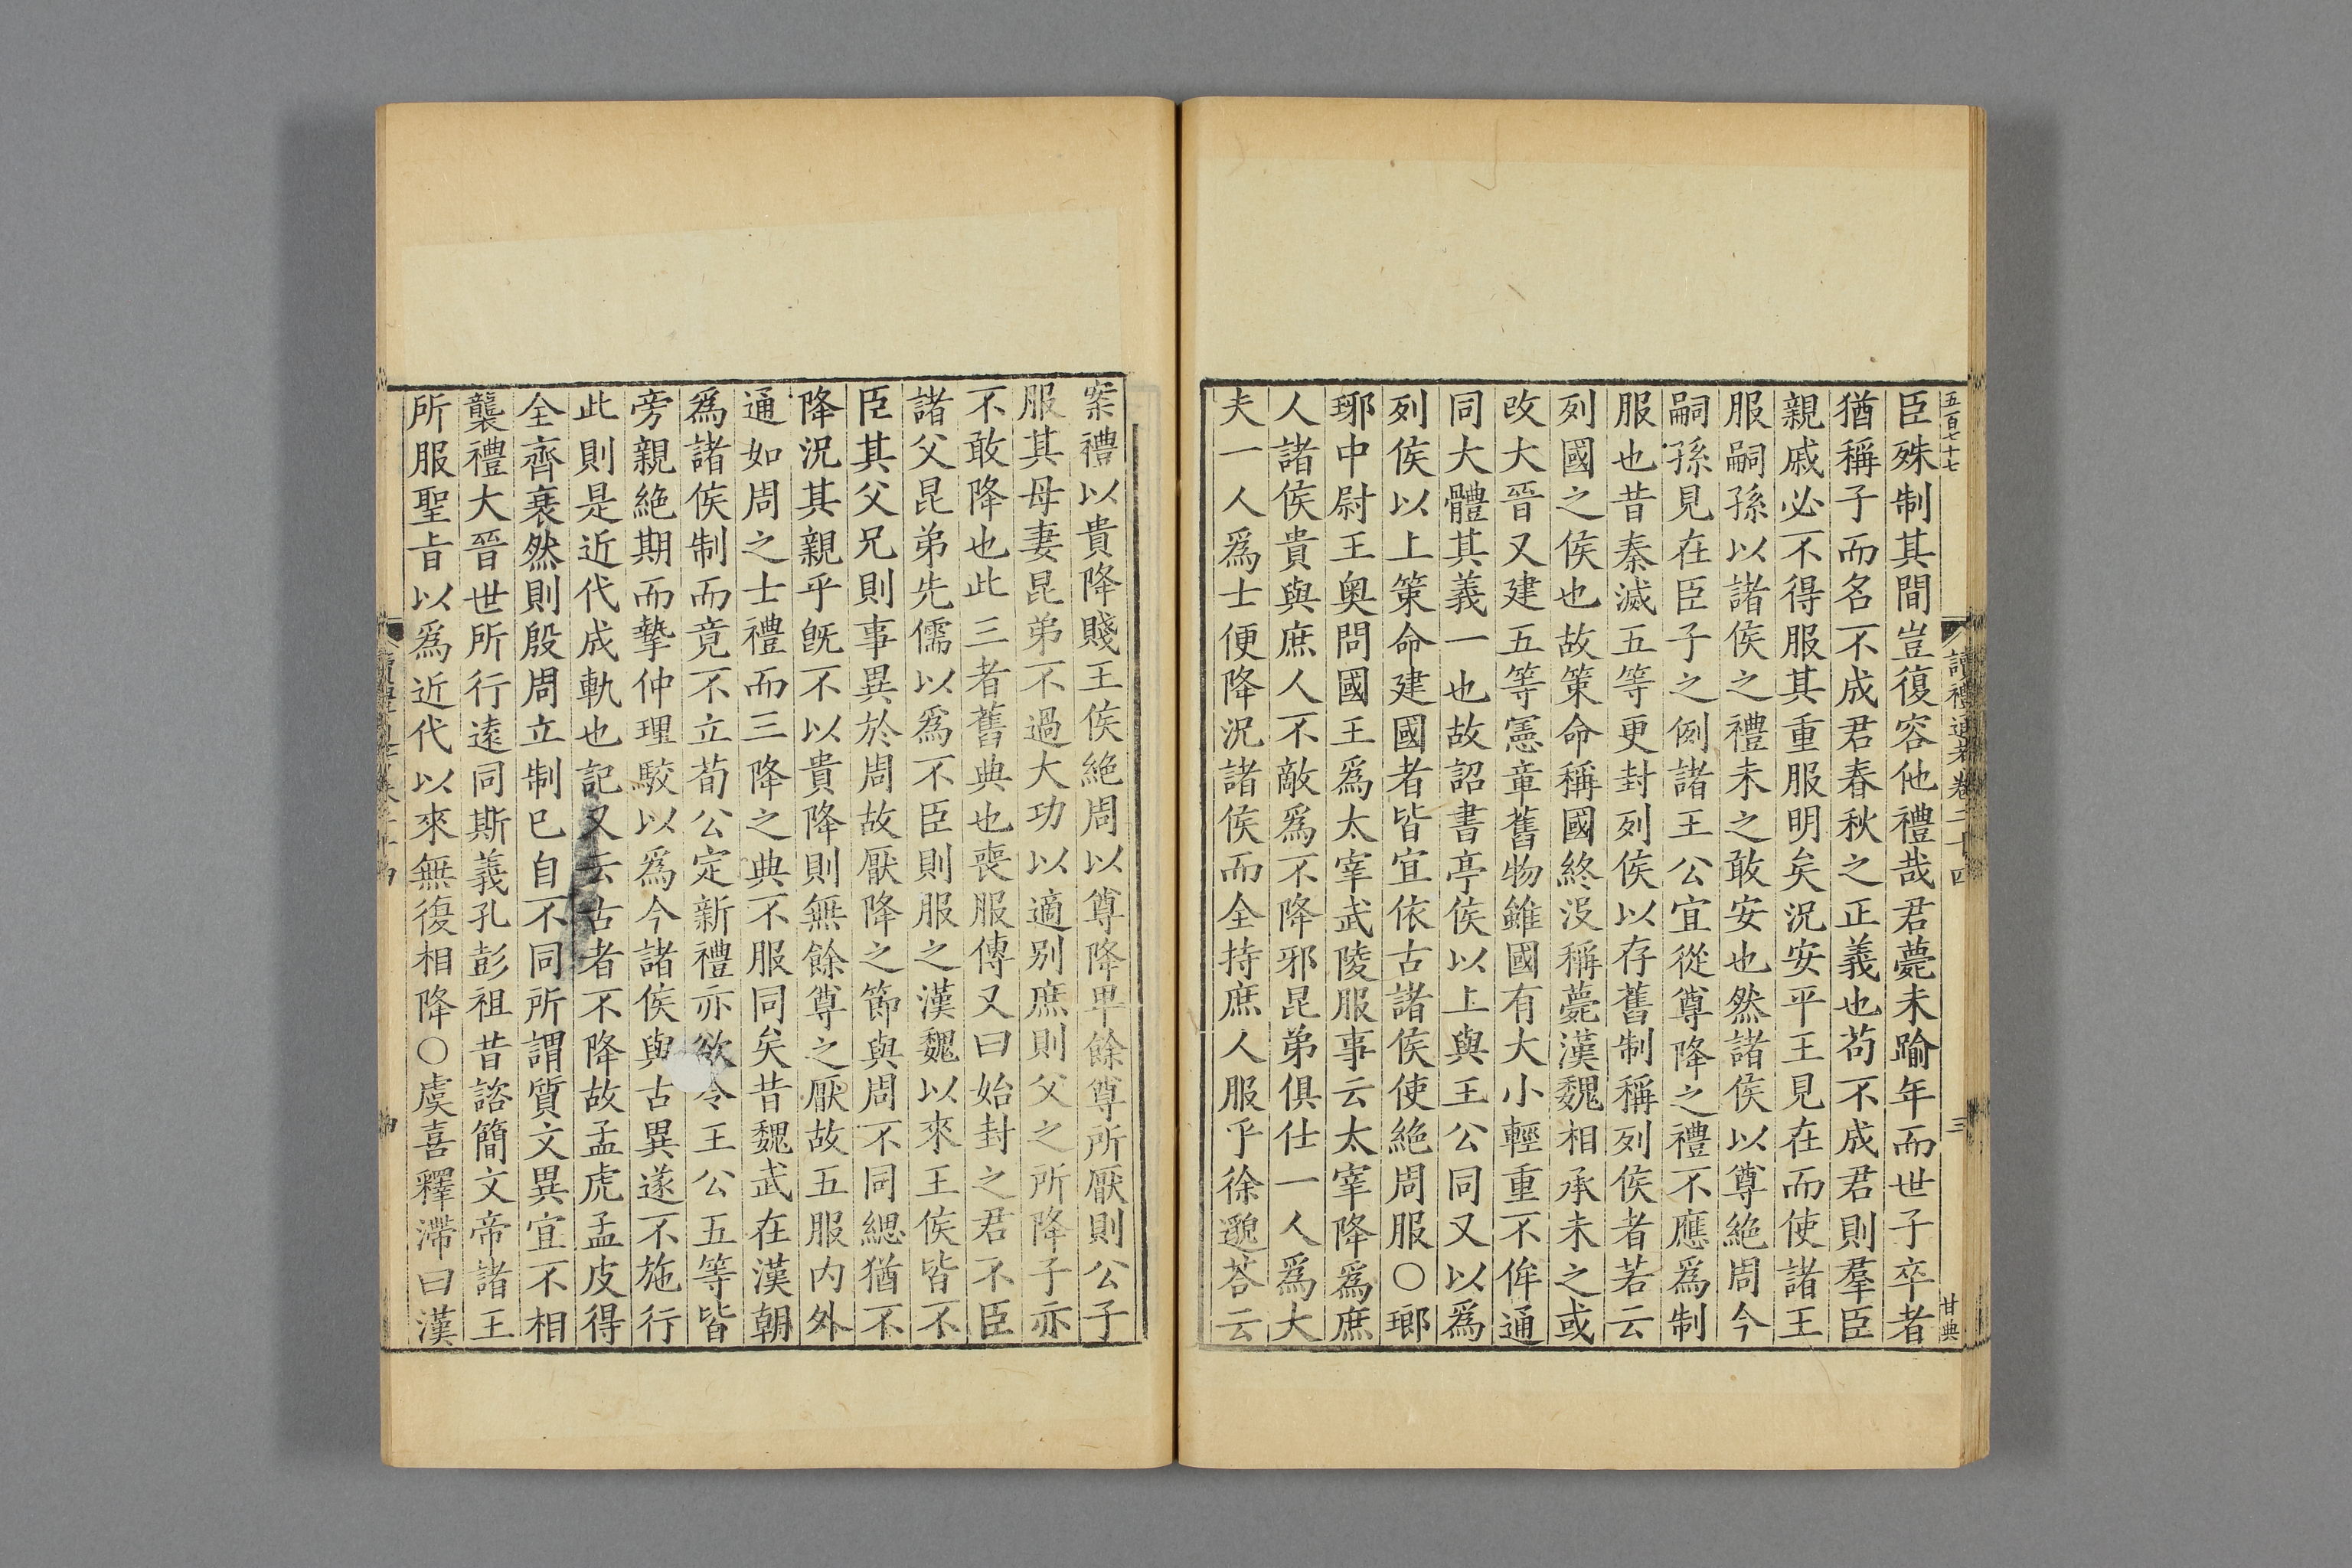 五百七十七
讀禮通考卷二十四
三
甘典
臣殊制其間豈復容他禮哉君薨未踰年而世子卒者
猶稱子而名不成君春秋之正義也苟不成君則羣臣
親戚必不得服其重服明矣況安平王見在而使諸王
服嗣孫以諸侯之禮未之敢安也然諸侯以尊絶周今
嗣孫見在臣子之例諸王公宜從尊降之禮不應爲制
服也昔秦滅五等更封列侯以存舊制稱列侯者若云
列國之侯也故策命稱國終沒稱薨漢魏相承未之或
改大晉又建五等憲章舊物雖國有大小輕重不侔通
同大體其義一也故詔書亭侯以上與王公同又以爲
列侯以上策命建國者皆宜依古諸侯使絶周服○瑯
琊中尉王奥問國王爲太宰武陵服事云太宰降爲庶
人諸侯貴與庶人不敵爲不降邪昆弟俱仕一人爲大
夫一人爲士便降況諸侯而全持庶人服乎徐邈荅云
案禮以貴降賤王侯絶周以尊降卑餘尊所厭則公子
服其母妻昆弟不過大功以適别庶則父之所降子亦
不敢降也此三者舊典也喪服傳又曰始封之君不臣
諸父昆弟先儒以爲不臣則服之漢魏以來王侯皆不
臣其父兄則事異於周故厭降之節與周不同緦猶不
降況其親乎旣不以貴降則無餘尊之厭故五服内外
通如周之士禮而三降之典不服同矣昔魏武在漢朝
爲諸侯制而竟不立荀公定新禮亦欲令王公五等皆
旁親絶期而摯仲理駮以爲今諸侯與古異遂不施行
此則是近代成軌也記又云古者不降故孟虎孟皮得
全齊衰然則殷周立制已自不同所謂質文異宜不相
襲禮大晉世所行遠同斯義孔彭祖昔諮簡文帝諸王
所服聖㫖以爲近代以來無復相降○虞喜釋滯曰漢